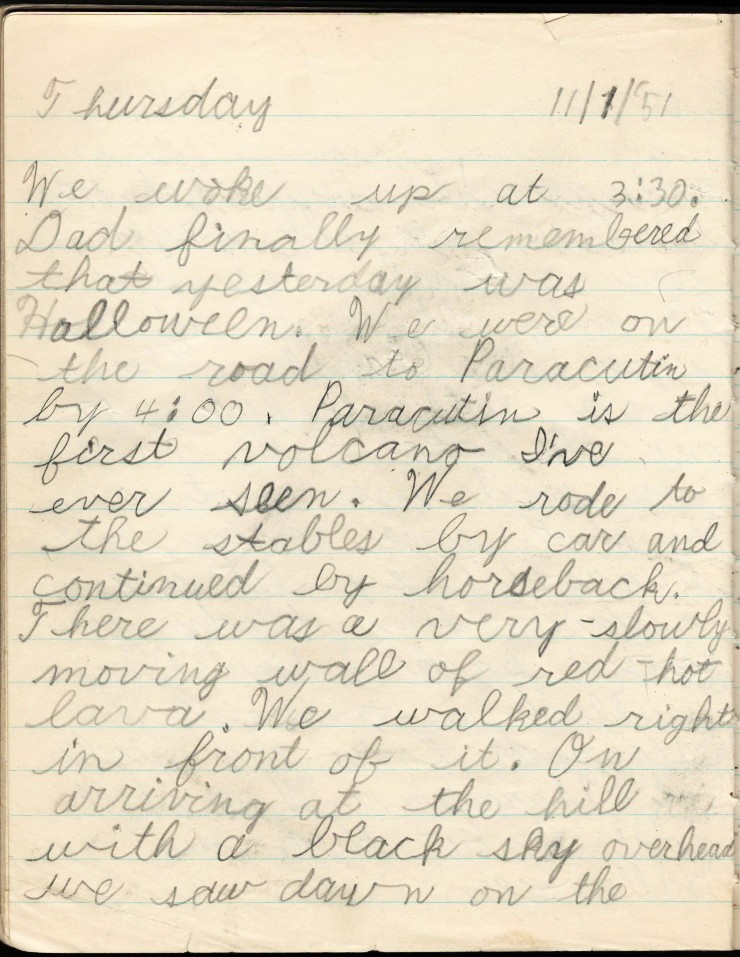 Thursday 11/1/51
We woke up at 3:30.
Dad finally remembered
that yesterday was
Halloween. We were on
the road to Paracutin
by 4:00. Paracutin is the
first volcano I've
ever seen. We rode to
the stables by car and
continued by horseback.
There was a very-slowly
moving wall of red-hot
lava. We walked right
in front of it. On
arriving at the hill
with a black sky overhead
we saw dawn on the